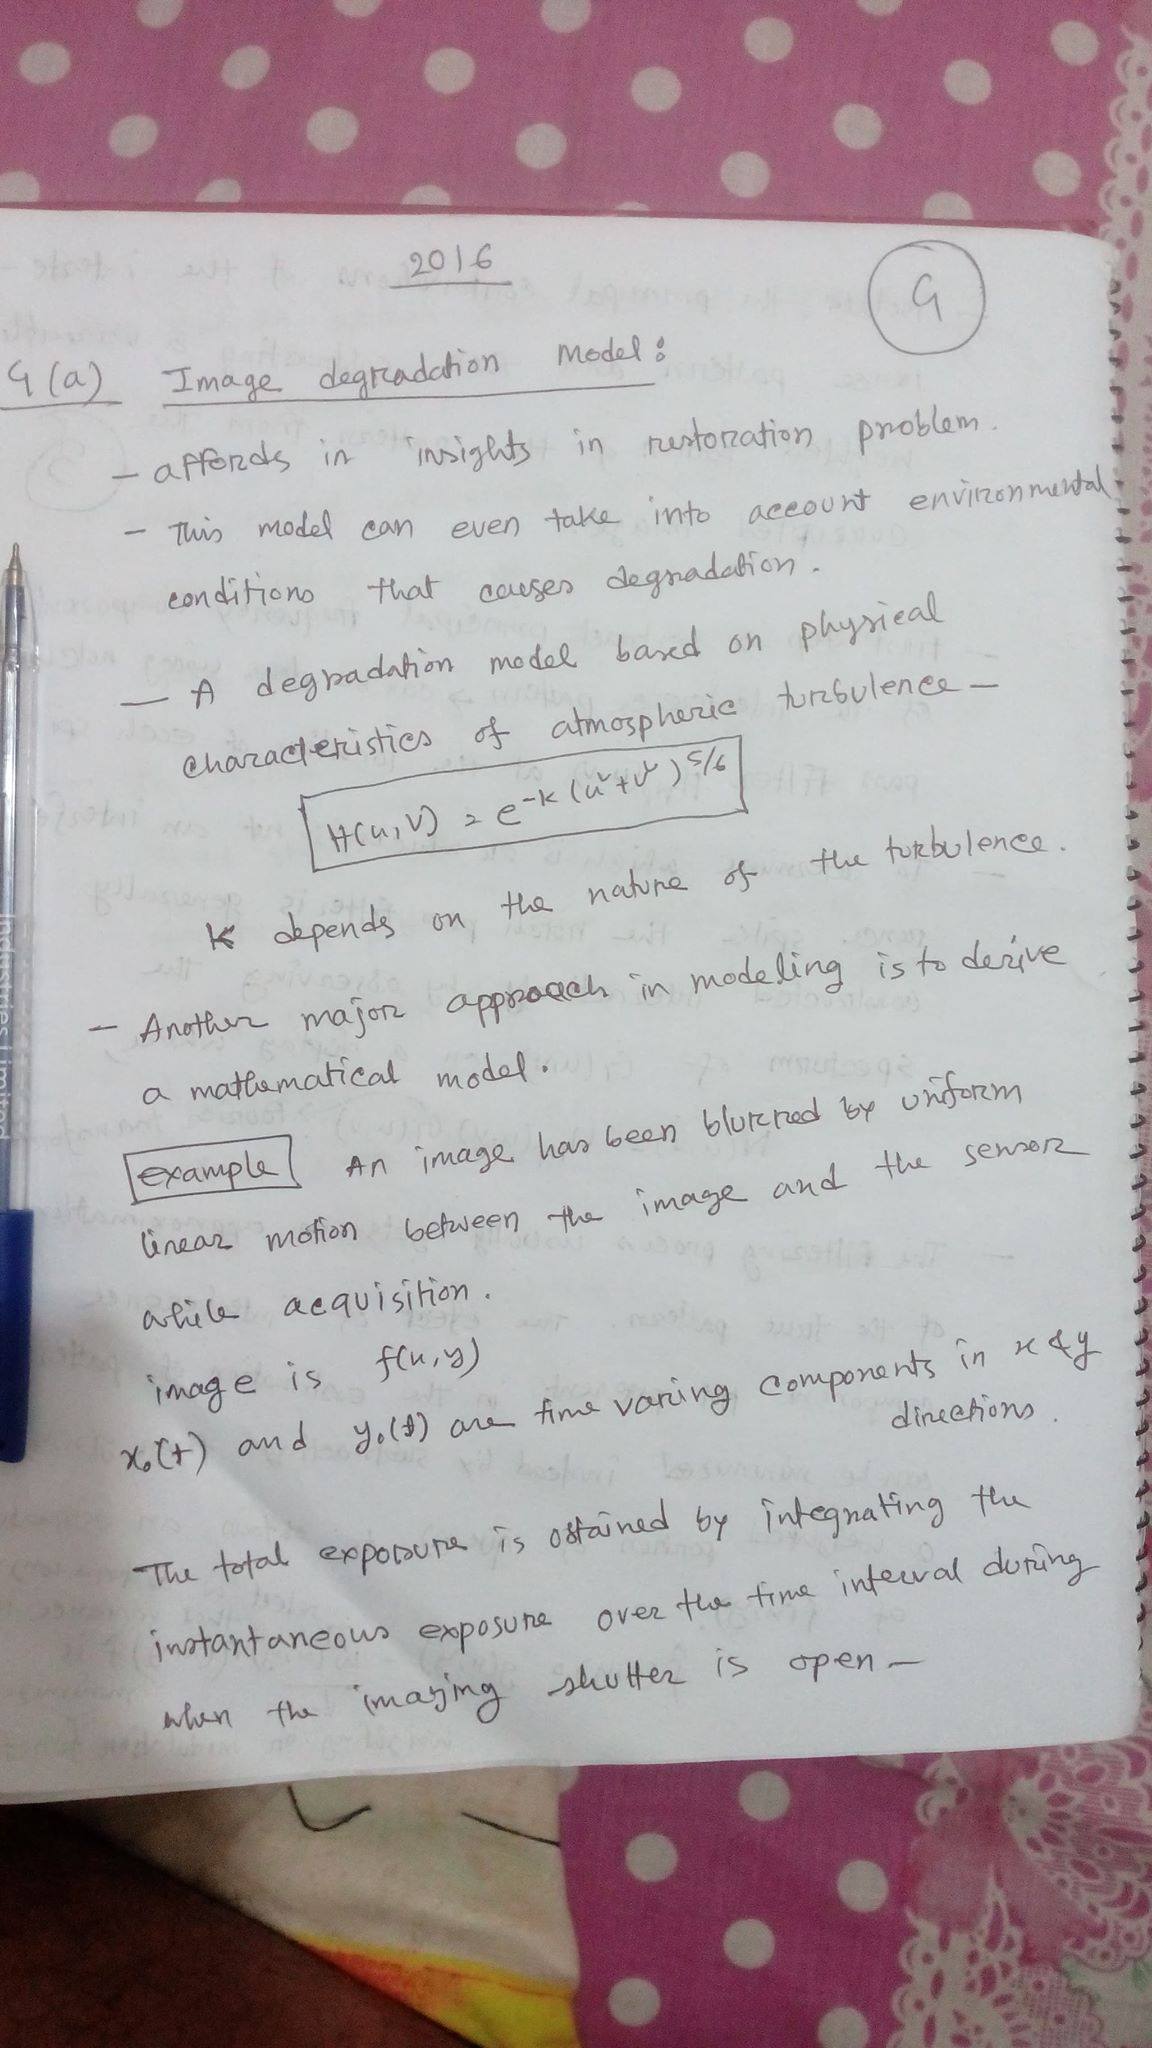 2016
4
4(a) Image degradation Model:
- affords in insights in restoration problem.
- This model can even take into account environmental
conditions that causes degradation.
- A degradation model based on physical
characteristics of atmospheric turbulence -
H(u,v) = e^-k(u²+v²)^5/6
K depends on the nature of the turbulence.
- Another major approach in modeling is to derive
a mathematical model.
example An image has been blurred by uniform
linear motion between the image and the sensor
while acquisition.
image is f(x,y)
x₀(t) and y₀(t) are time varing components in x & y
directions.
The total exposure is obtained by integrating the
instantaneous exposure over the time interval during
when the imaging shutter is open -